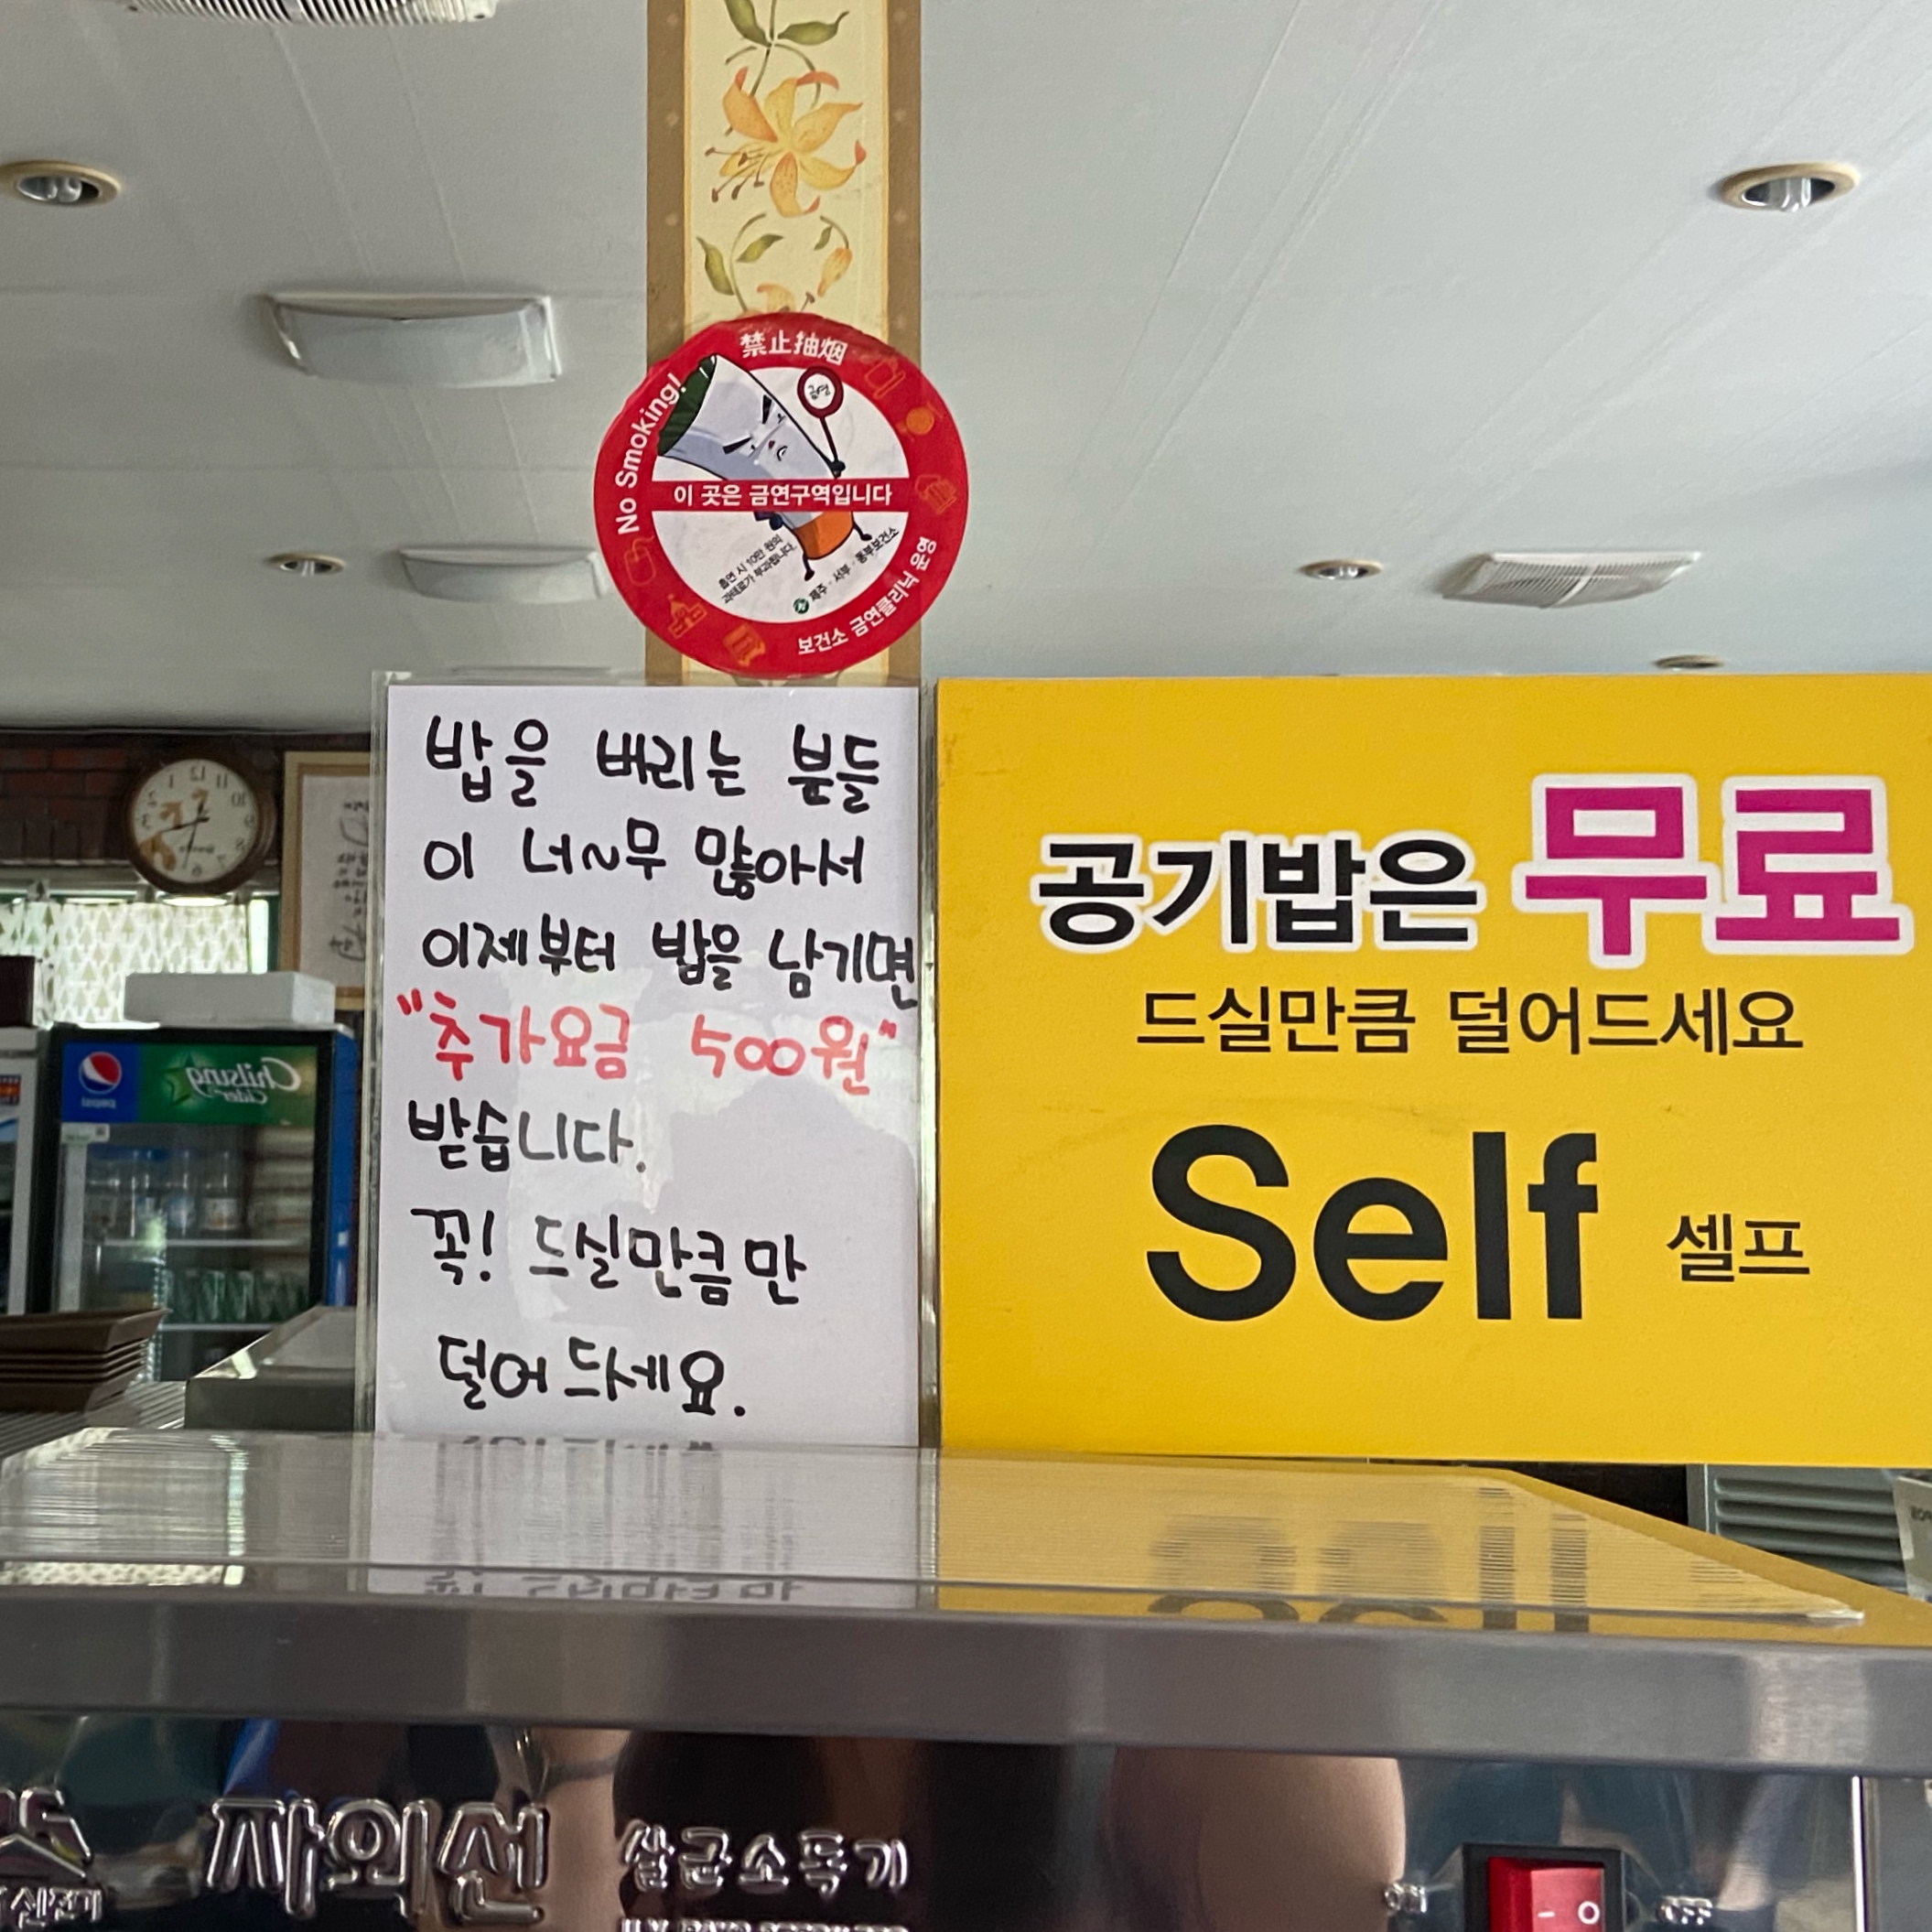 禁止抽烟
No Smoking!
금연
이 곳은 금연구역입니다
흡연 시 10만 원의
과태료가 부과됩니다.
제주·서부·동부보건소
보건소 금연클리닉 운영
밥을 버리는 분들
이 너~무 많아서
이제부터 밥을 남기면
"추가요금 500원"
받습니다.
꼭! 드실만큼만
덜어드세요.
공기밥은 무료
드실만큼 덜어드세요
Self 셀프
pepsi
Chilsung
Cider
자외선 살균소독기
ON
OFF